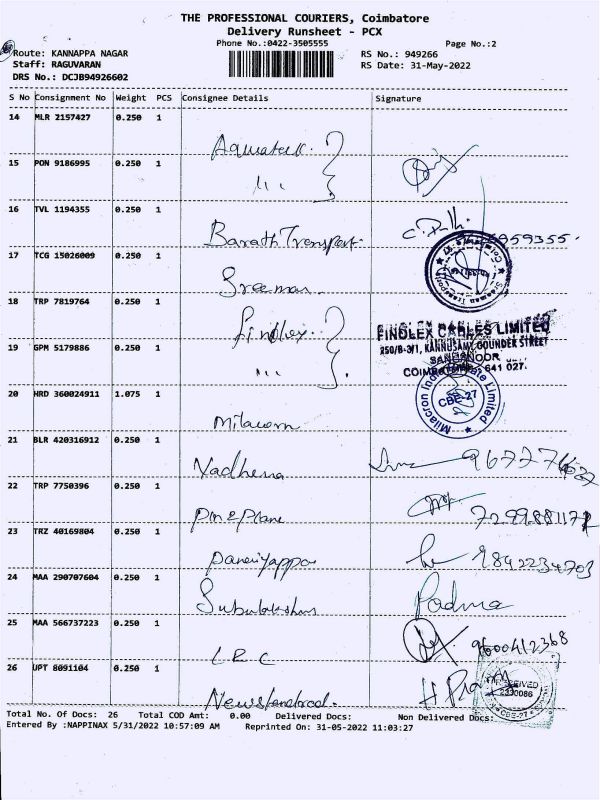 THE PROFESSIONAL COURIERS, Coimbatore
Delivery Runsheet - PCX
Phone No.:0422-3505555 Page No.:2
Route: KANNAPPA NAGAR RS No.: 949266
Staff: RAGUVARAN RS Date: 31-May-2022
DRS No.: DCJB94926602
S No Consignment No Weight PCS Consignee Details Signature
14 MLR 2157427 0.250 1
15 PON 9186995 0.250 1
16 TVL 1194355 0.250 1
Barath Transport.
17 TCG 15026009 0.250 1
Sreeman.
18 TRP 7819764 0.250 1
FINOLEX CABLES LIMITED
250/B-3/1, KANNUSAMY GOUNDER STREET
19 GPM 5179886 0.250 1
641 027.
20 HRD 360024911 1.075 1
Milacron India Private Limited
CBE-27
21 BLR 420316912 0.250 1
22 TRP 7750396 0.250 1
Pin & Plane
23 TRZ 40169804 0.250 1
24 MAA 290707604 0.250 1
Padma
25 MAA 566737223 0.250 1
9600412368
LRC
26 UPT 8091104 0.250 1
RECEIVED
CBE-27
Total No. Of Docs: 26 Total COD Amt: 0.00 Delivered Docs: Non Delivered Docs:
Entered By :NAPPINAX 5/31/2022 10:57:09 AM Reprinted On: 31-05-2022 11:03:27